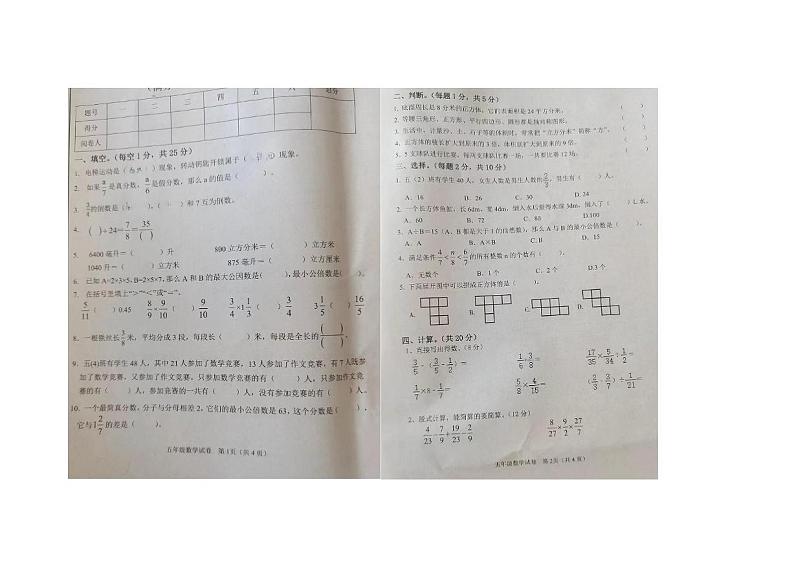 题号 一 二 三 四 五 六 总分
得分
阅卷人
一、填空。(每空1分,共25分)
1. 电梯运动是( )现象,转动钥匙开锁属于( )现象。
2. 如果a/7是真分数,a/6是假分数,那么a的值是( )。
3. 3/4的倒数是( ),( )和7互为倒数。
4. ( )÷24=7/8=35/( )
5. 6400毫升=( )升 800立方分米=( )立方米
1040升=( )立方米 875毫升=( )立方分米
6. 已知A=2×3×5,B=2×5×7,那么A和B的最大公因数是( ),最小公倍数是( )。
7. 在括号里填上“>”“<”或“=”。
5/11( )0.45 8/9×9/10( )9/10 3/4×1 1/3( )3/4 3 1/5( )16/5
8. 一根铁丝长3/8米,平均分成3段,每段长( )米,每段是全长的( )/( )。
9. 五(4)班有学生48人,其中21人参加了数学竞赛,13人参加了作文竞赛,有7人既参
加了数学竞赛,又参加了作文竞赛。只参加数学竞赛的有( )人,只参加作文竞
赛的有( )人,参加竞赛的一共有( )人,没有参加竞赛的有( )人。
10. 一个最简真分数,分子与分母相差2,它们的最小公倍数是63,这个分数是( ),
它与1 2/7的差是( )。
五年级数学试卷 第1页(共4页)
二、判断。(每题1分,共5分)
1. 底面周长是8分米的正方体,它的表面积是24平方分米。 ( )
2. 等腰三角形、正方形、平行四边形、圆形都是轴对称图形。 ( )
3. 生活中,计量沙、土、石子等的体积时,常常把“立方分米”简称“方”。 ( )
4. 正方体的棱长扩大到原来的3倍,体积就扩大到原来的9倍。 ( )
5. 5支球队进行比赛,每两支球队比赛一场,一共要比赛12场。 ( )
三、选择。(每题2分,共10分)
1. 五(2)班有学生40人,女生人数是男生人数的2/3,男生有( )人。
A. 16 B. 26 C. 30 D. 24
2. 一个长方体鱼缸,长6dm,宽4dm,倒入水后量得水深3dm,倒入了( )L水。
A. 60 B. 72 C. 80 D.100
3. A÷B=15(A、B都是大于1的自然数),那么A与B的最小公倍数是( )。
A. A B. A×B C. B D. 15
4. 满足条件4/7<n/8<6/7的所有整数n的个数有( )。
A. 无数个 B. 1个 C. 2个 D.3个
5. 下面展开图中可以拼成正方体的是( )。
A. B. C. D.
四、计算。(共20分)
1、直接写出得数。(8分)
2、脱式计算,能简算的要简算。(12分)
4/23-7/9+19/23-2/9 8/27×9/2×2/27
五年级数学试卷 第2页(共4页)